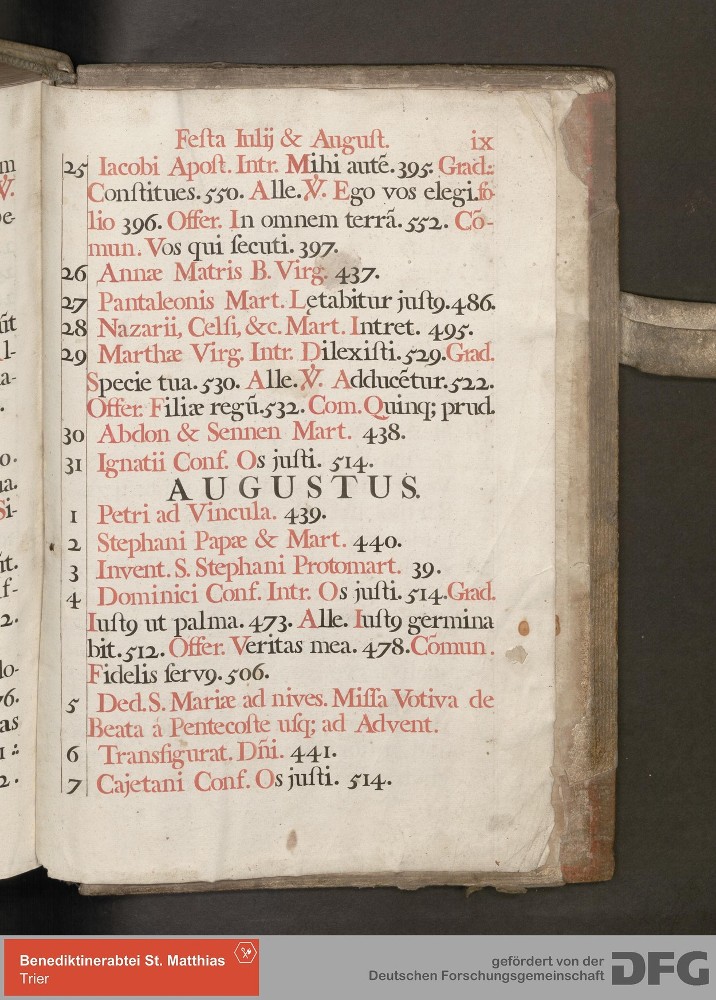 Feſta Iulij & Auguſt. ix
25 Iacobi Apoſt. Intr. Mihi autē. 395. Grad.:
Conſtitues. 550. Alle. ℣. Ego vos elegi. fo-
lio 396. Offer. In omnem terrā. 552. Cō-
mun. Vos qui ſecuti. 397.
26 Annæ Matris B. Virg. 437.
27 Pantaleonis Mart. Lętabitur juſt9. 486.
28 Nazarii, Celſi, &c. Mart. Intret. 495.
29 Marthæ Virg. Intr. Dilexiſti. 529. Grad.
Specie tua. 530. Alle. ℣. Adducētur. 522.
Offer. Filiæ regū. 532. Com. Quinq; prud.
30 Abdon & Sennen Mart. 438.
31 Ignatii Conf. Os juſti. 514.
AUGUSTUS.
1 Petri ad Vincula. 439.
2 Stephani Papæ & Mart. 440.
3 Invent. S. Stephani Protomart. 39.
4 Dominici Conf. Intr. Os juſti. 514. Grad.
Iuſt9 ut palma. 473. Alle. Iuſt9 germina
bit. 512. Offer. Veritas mea. 478. Cōmun.
Fidelis ſerv9. 506.
5 Ded. S. Mariæ ad nives. Miſſa Votiva de
Beata á Pentecoſte uſq; ad Advent.
6 Transfigurat. Dñi. 441.
7 Cajetani Conf. Os juſti. 514.
Benediktinerabtei St. Matthias
Trier
gefördert von der
Deutschen Forschungsgemeinschaft
DFG